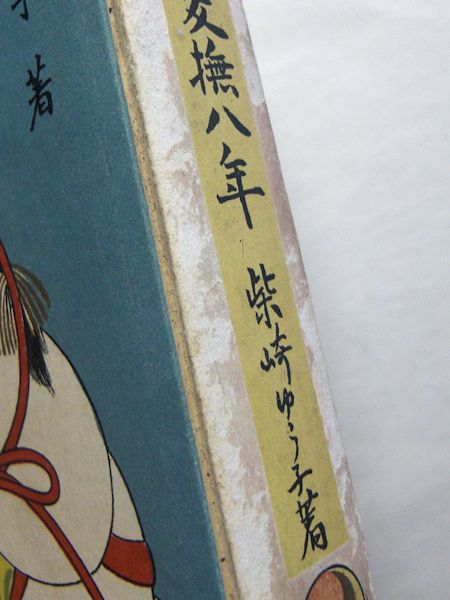 交撫八年 柴崎ゆう子著
著